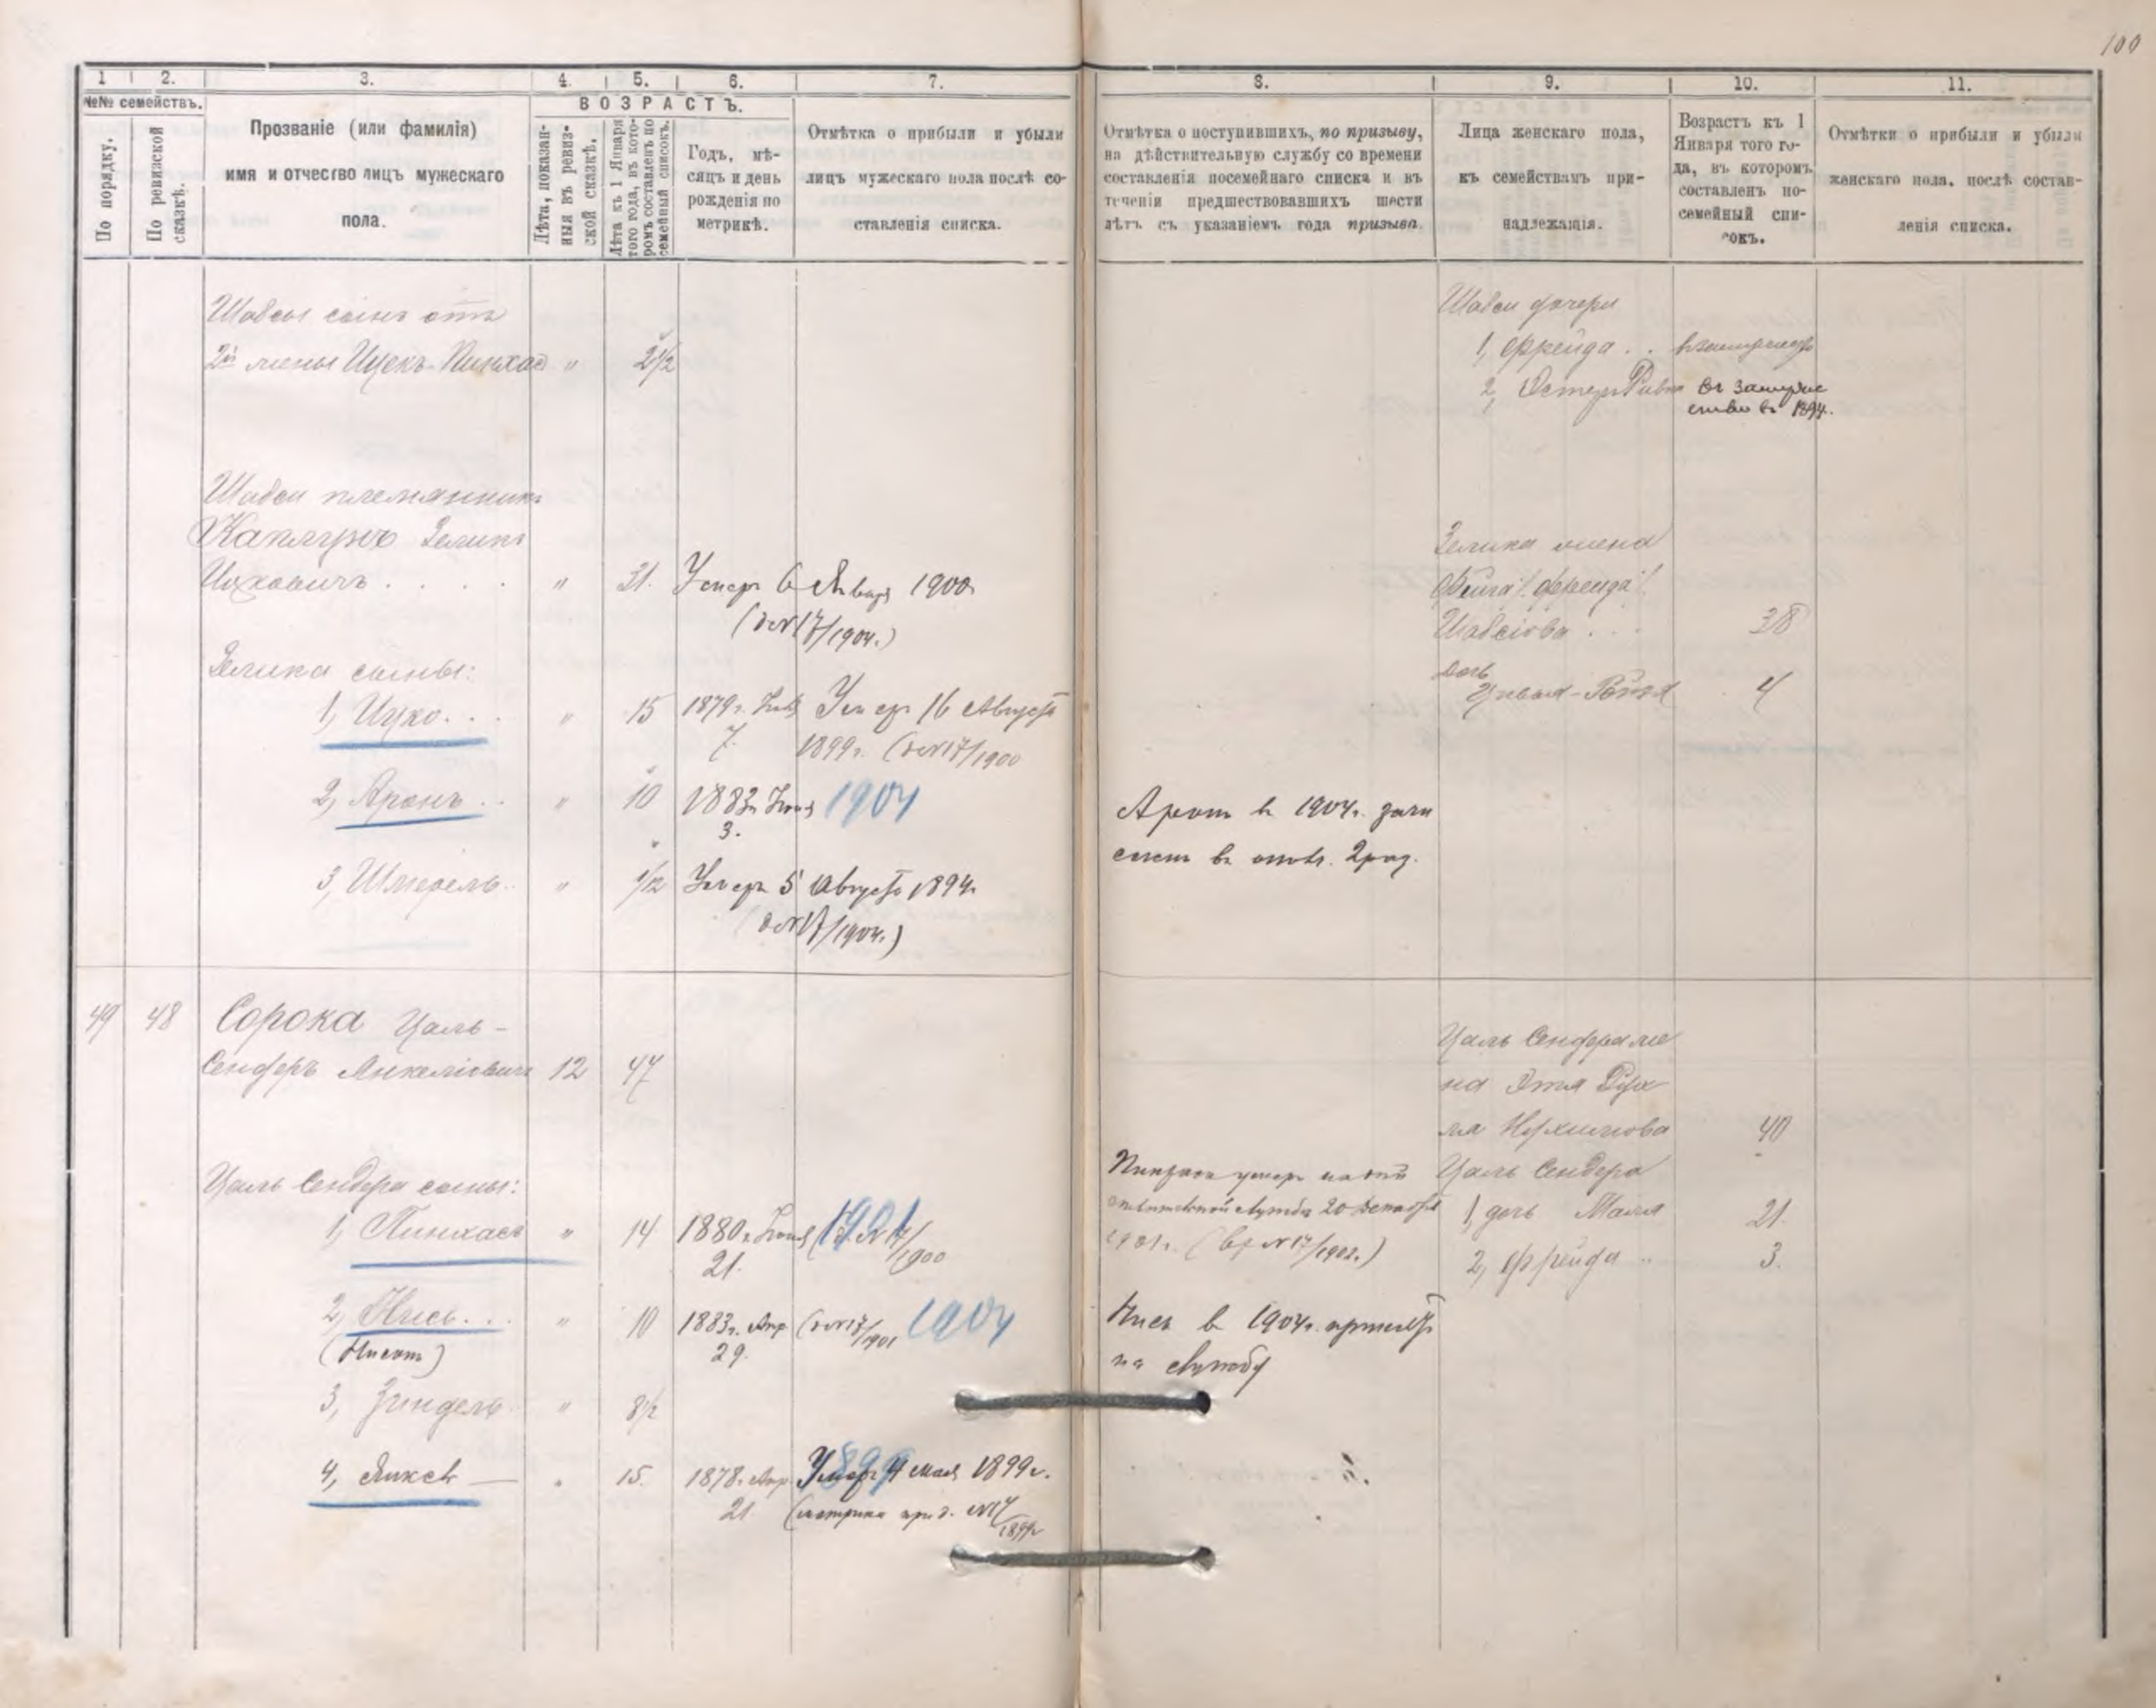 100
1 2. 3. 4. 5. 6. 7. 8. 9. 10. 11.
№№ семействъ.
По порядку.
По ревизской сказкѣ.
Прозваніе (или фамилія)
имя и отчество лицъ мужескаго
пола.
ВОЗРАСТЪ.
Лѣта, показан-
ныя въ ревиз-
ской сказкѣ.
Лѣта къ 1 Января
того года, въ кото-
ромъ составленъ по
семейный списокъ.
Годъ, мѣ-
сяцъ и день
рожденія по
метрикѣ.
Отмѣтка о прибыли и убыли
лицъ мужескаго пола послѣ со-
ставленія списка.
Отмѣтка о поступившихъ, по призыву,
на дѣйствительную службу со времени
составленія посемейнаго списка и въ
теченіи предшествовавшихъ шести
лѣтъ съ указаніемъ года призыва.
Лица женскаго пола,
къ семействамъ при-
надлежащія.
Возрастъ къ 1
Января того го-
да, въ которомъ
составленъ по-
семейный спи-
сокъ.
Отмѣтки о прибыли и убыли
женскаго пола, послѣ состав-
ленія списка.
Шабсы сынъ отъ
2й жены Ицекъ-Пинхас " 2 1/2
Шабси дочери
1, Фрейда . . в замужеств
2, Остер Ривка въ замуже
ствѣ въ 1894.
Шабси племянникъ
Каплунъ Зеликъ
Ицковичъ . . . . " 31. Умеръ 6 Января 1900
(д. №17/1904.)
Зелика жена
Фейга /: Фрейда :/
Шабсіова . . . 38
дочь
Цивья-Ройзя 4
Зелика сыны:
1, Ицко. . . " 15 1879г. Янв 7. Умеръ 16 Августа
1899г. (д. №17/1900
2, Аронъ . . " 10 1883г. Іюня 3. 1904
Аронъ в 1904г. зачи
сленъ въ ополч. 2 раз.
3, Шмерель . . " 1/12 Умеръ 5 Августа 1894г.
(д №17/1904.)
49 48 Сорока Цаль-
Сендеръ Янкеліовичъ 12 47
Цаль Сендера же
на Этя Рух
ля Нохимова 40
Цаль Сендера сыны:
1, Пинхасъ " 14 1880г. Іюня 21. 1901 (д №17/1900
Пинхасъ умеръ на дѣй
ствительной службѣ 20 Декабря
1901г. (вх №17/1902.)
Цаль Сендера
1, дочь Маля 21.
2, Фрейда . . 3.
2, Нись. . . " 10 1883г. Апр 29. (д №17/1901 1904
(Нисонъ)
Нись в 1904г. принятъ
на службу
3, Зиндель " 8 1/2
4, Янкель — " 15. 1878г. Апр 21. 1899 Умеръ 4 Мая 1899г.
(метрика при д. №17/1899г